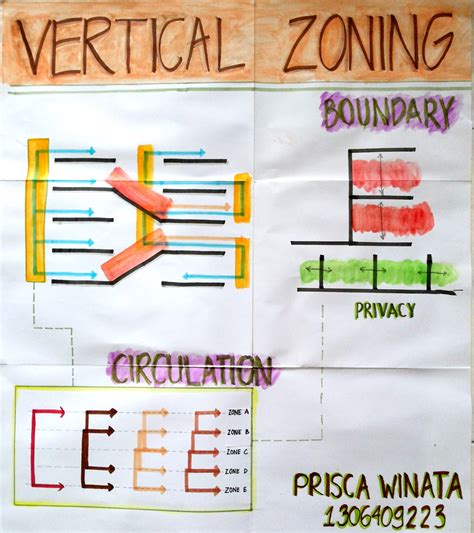 VERTICAL ZONING
BOUNDARY
PRIVACY
CIRCULATION
ZONE A
ZONE B
ZONE C
ZONE D
ZONE E
PRISCA WINATA
1306409223